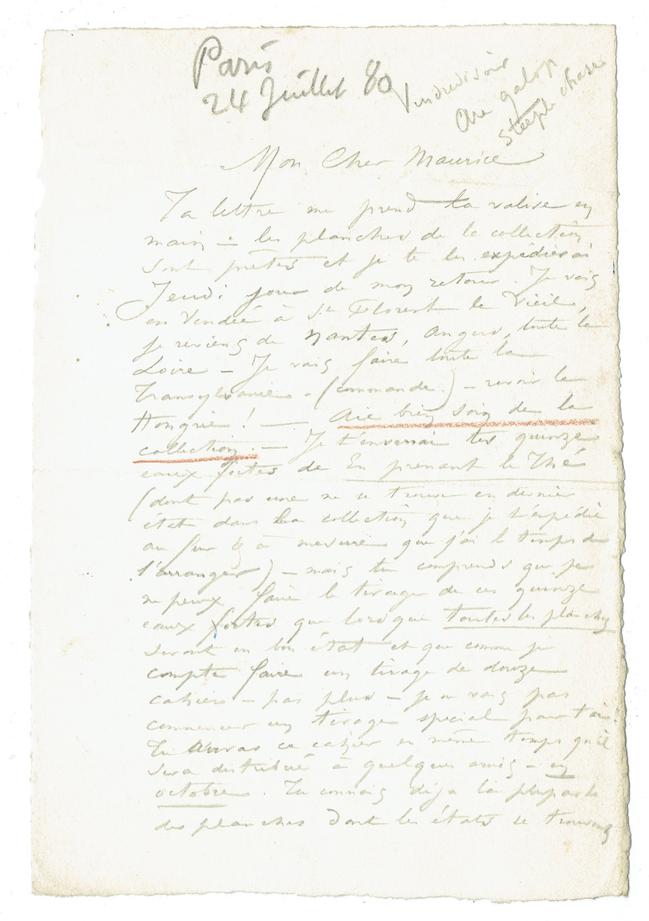 Paris
24 Juillet 80 Vendredi soir
au galop
steeple chase
Mon Cher Maurice
Ta lettre me prend la valise en
main – les planches de la collection
sont prêtes et je te les expédierai
Jeudi jour de mon retour. Je vais
en Vendée à St Florent le Vieil,
je reviens de Nantes, Angers, toute la
Loire – Je vais faire toute la
Transylvanie – (commande) – revoir la
Hongrie! – Aie bien soin de la
collection. – Je t'enverrai les quinze
eaux fortes de En prenant le Thé
(dont pas une ne se trouve en dernier
état dans la collection que je t'expédie
au fur & à mesure que j'ai le temps de
l'arranger) – mais tu comprends que je
ne peux faire le tirage de ces quinze
eaux fortes que lorsque toutes les planches
seront en bon état et que comme je
compte faire un tirage de douze
cahiers – pas plus – je ne vais pas
commencer un tirage special pour toi!
Tu auras ce cahier en même temps qu'il
sera distribué à quelques amis – en
octobre. Tu connais déjà la plupart
des planches dont les états se trouvent